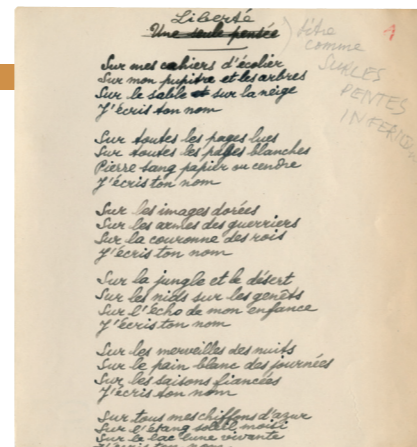 Liberté
Une seule pensée
titre
comme
SUR LES
PENTES
1
Sur mes cahiers d'écolier
Sur mon pupitre et les arbres
Sur le sable et sur la neige
J'écris ton nom
Sur toutes les pages lues
Sur toutes les pages blanches
Pierre sang papier ou cendre
J'écris ton nom
Sur les images dorées
Sur les armes des guerriers
Sur la couronne des rois
J'écris ton nom
Sur la jungle et le désert
Sur les nids sur les genêts
Sur l'écho de mon enfance
J'écris ton nom
Sur les merveilles des nuits
Sur le pain blanc des journées
Sur les saisons fiancées
J'écris ton nom
Sur tous mes chiffons d'azur
Sur l'étang soleil moisi
Sur le lac lune vivante
J'écris ton nom